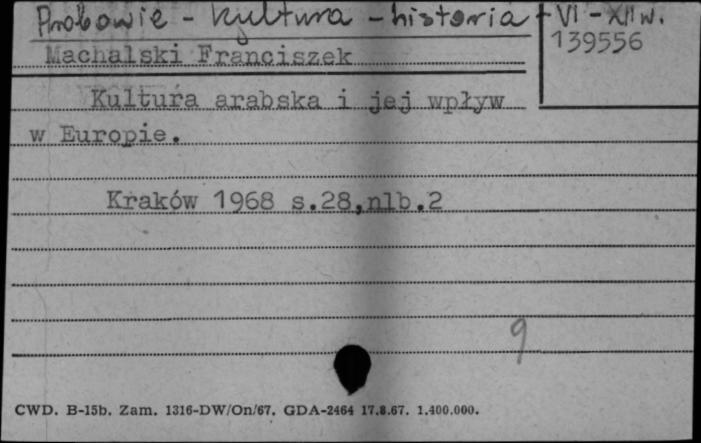 Arabowie - kultura - historia - VI - XII w.
139556
Machalski Franciszek
Kultura arabska i jej wpływ
w Europie.
Kraków 1968 s.28,nlb.2
9
CWD. B-15b. Zam. 1316-DW/On/67. GDA-2464 17.8.67. 1.400.000.